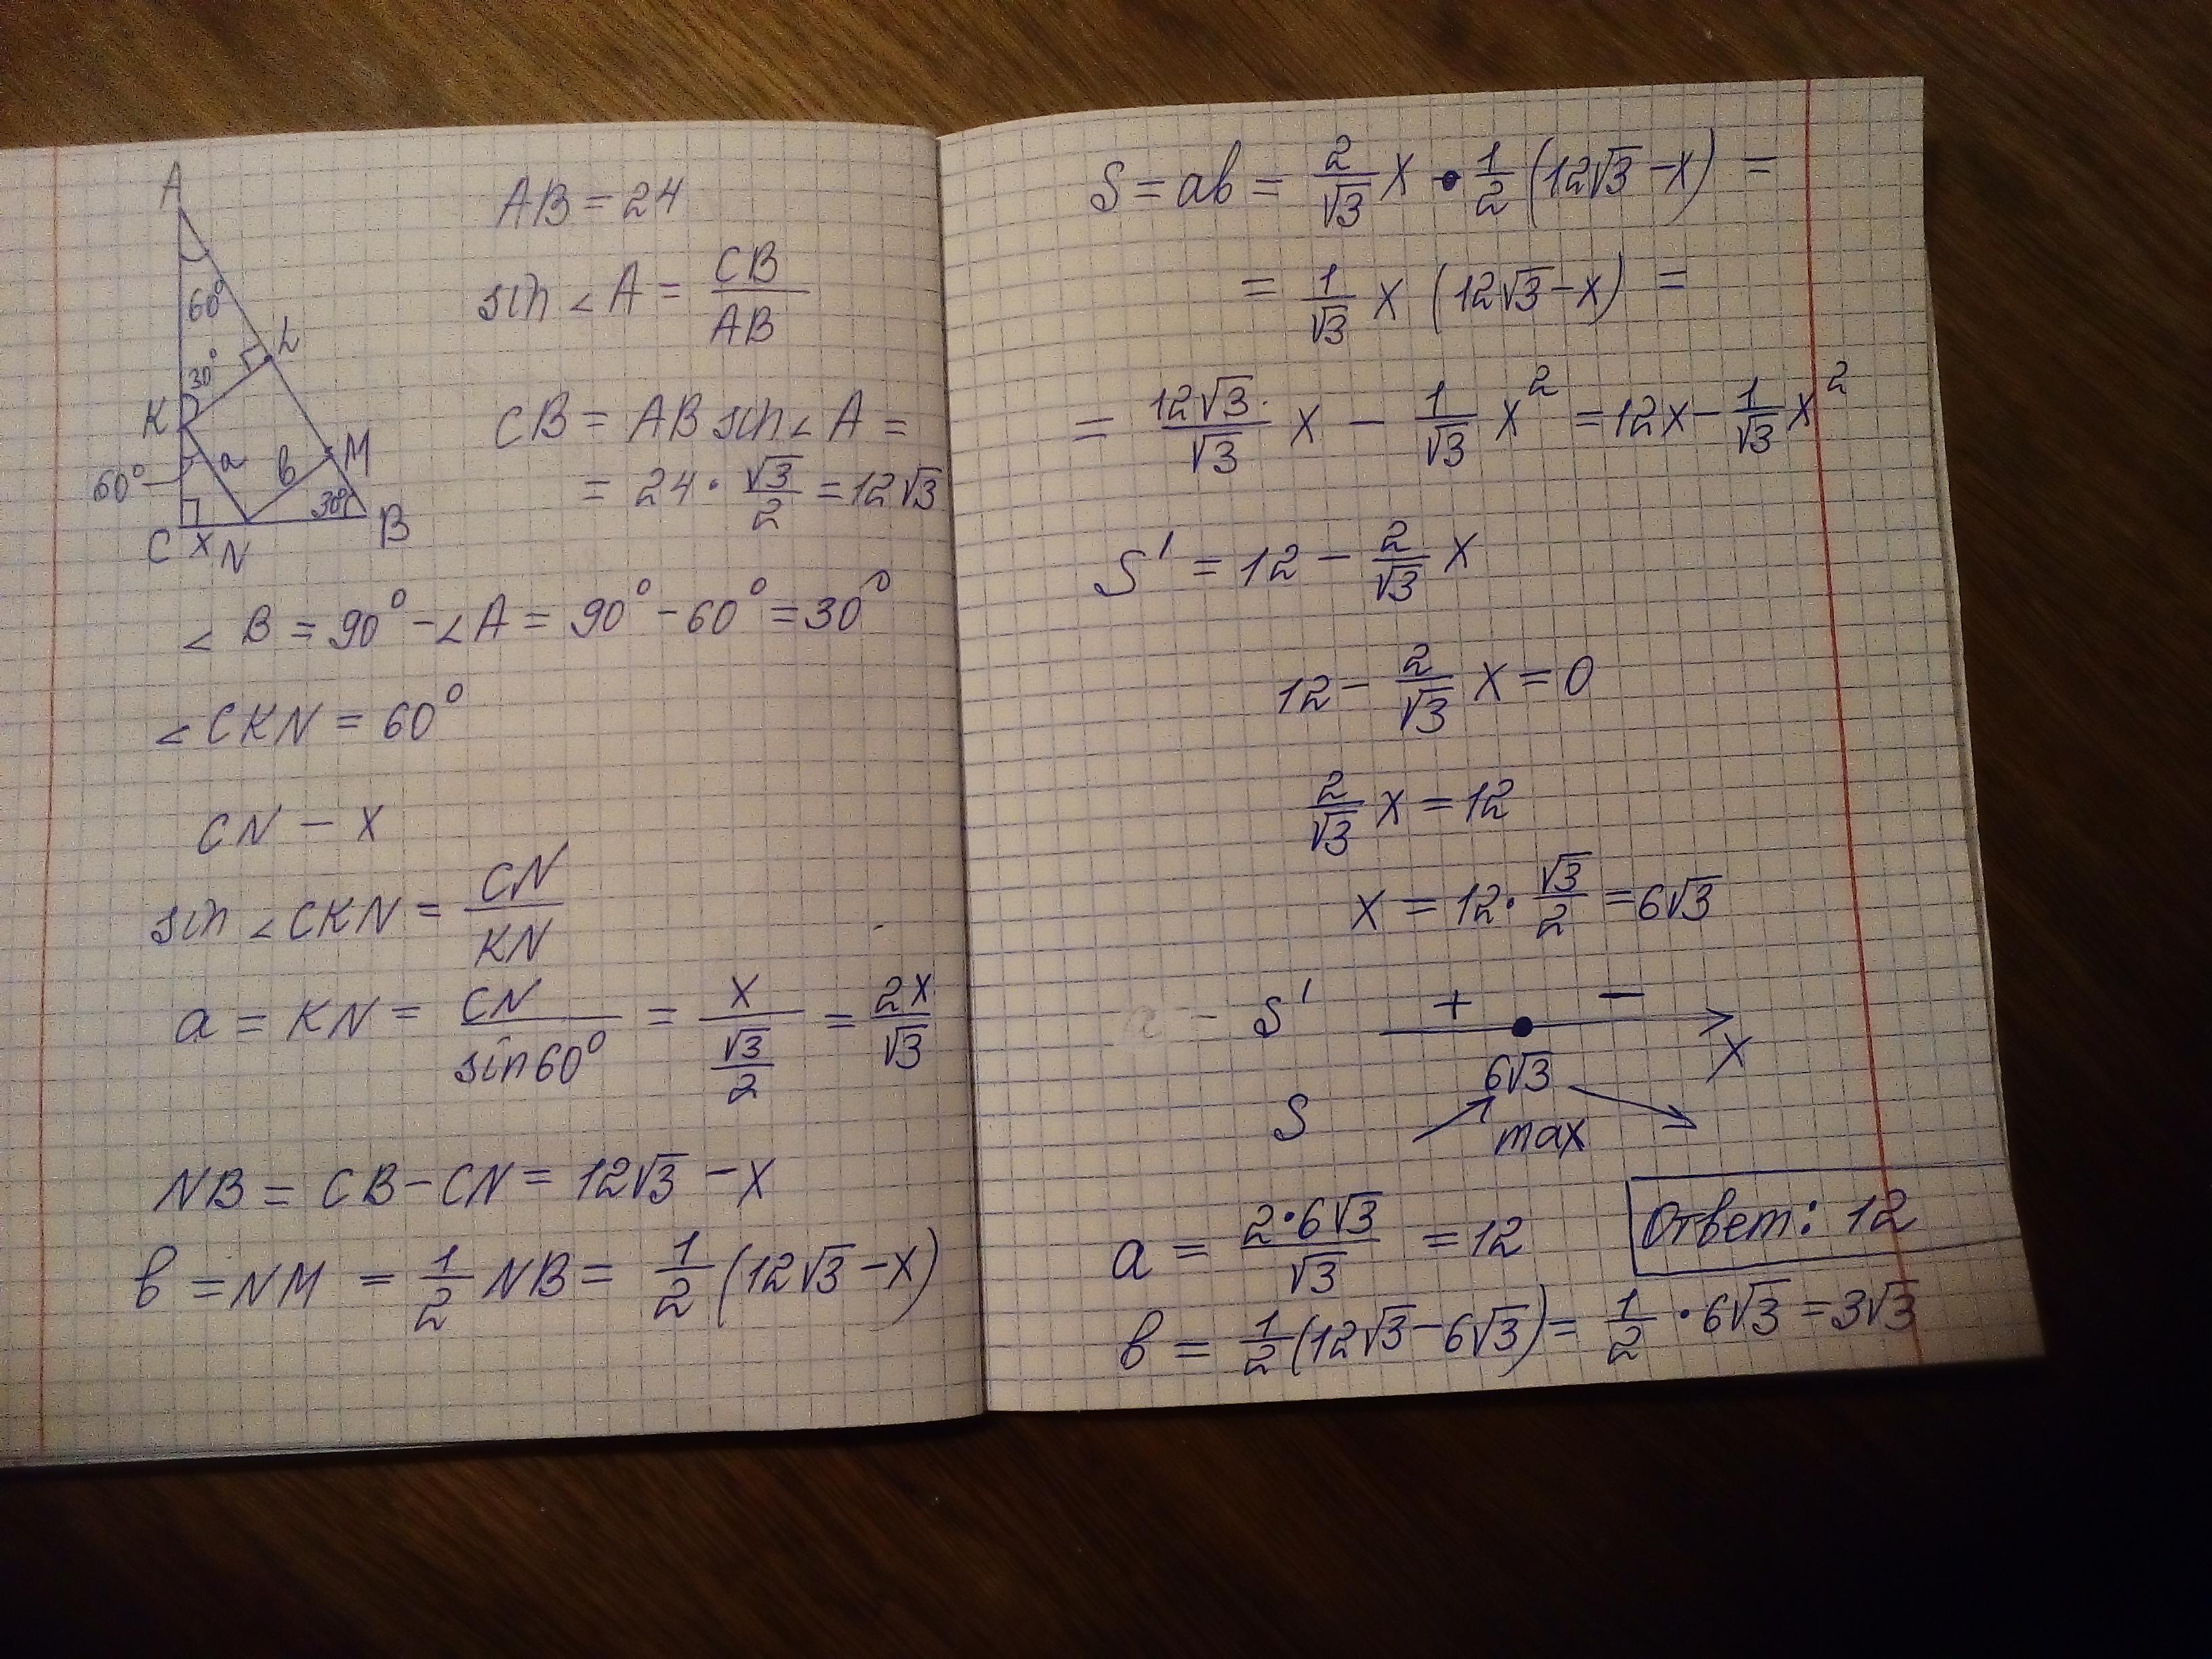 A
60°
30°
L
K
a
b
M
60°
30°
C x N
B
AB = 24
sin ∠A = CB/AB
CB = AB sin∠A =
= 24 · √3/2 = 12√3
∠B = 90° - ∠A = 90° - 60° = 30°
∠CKN = 60°
CN - x
sin ∠CKN = CN/KN
a = KN = CN/sin60° = x/(√3/2) = 2x/√3
NB = CB - CN = 12√3 - x
b = NM = 1/2 NB = 1/2 (12√3 - x)
S = ab = 2/√3 x · 1/2 (12√3 - x) =
= 1/√3 x (12√3 - x) =
= 12√3/√3 x - 1/√3 x² = 12x - 1/√3 x²
S' = 12 - 2/√3 x
12 - 2/√3 x = 0
2/√3 x = 12
x = 12 · √3/2 = 6√3
S' + -
6√3 x
S max
a = 2·6√3/√3 = 12
Ответ: 12
b = 1/2 (12√3 - 6√3) = 1/2 · 6√3 = 3√3